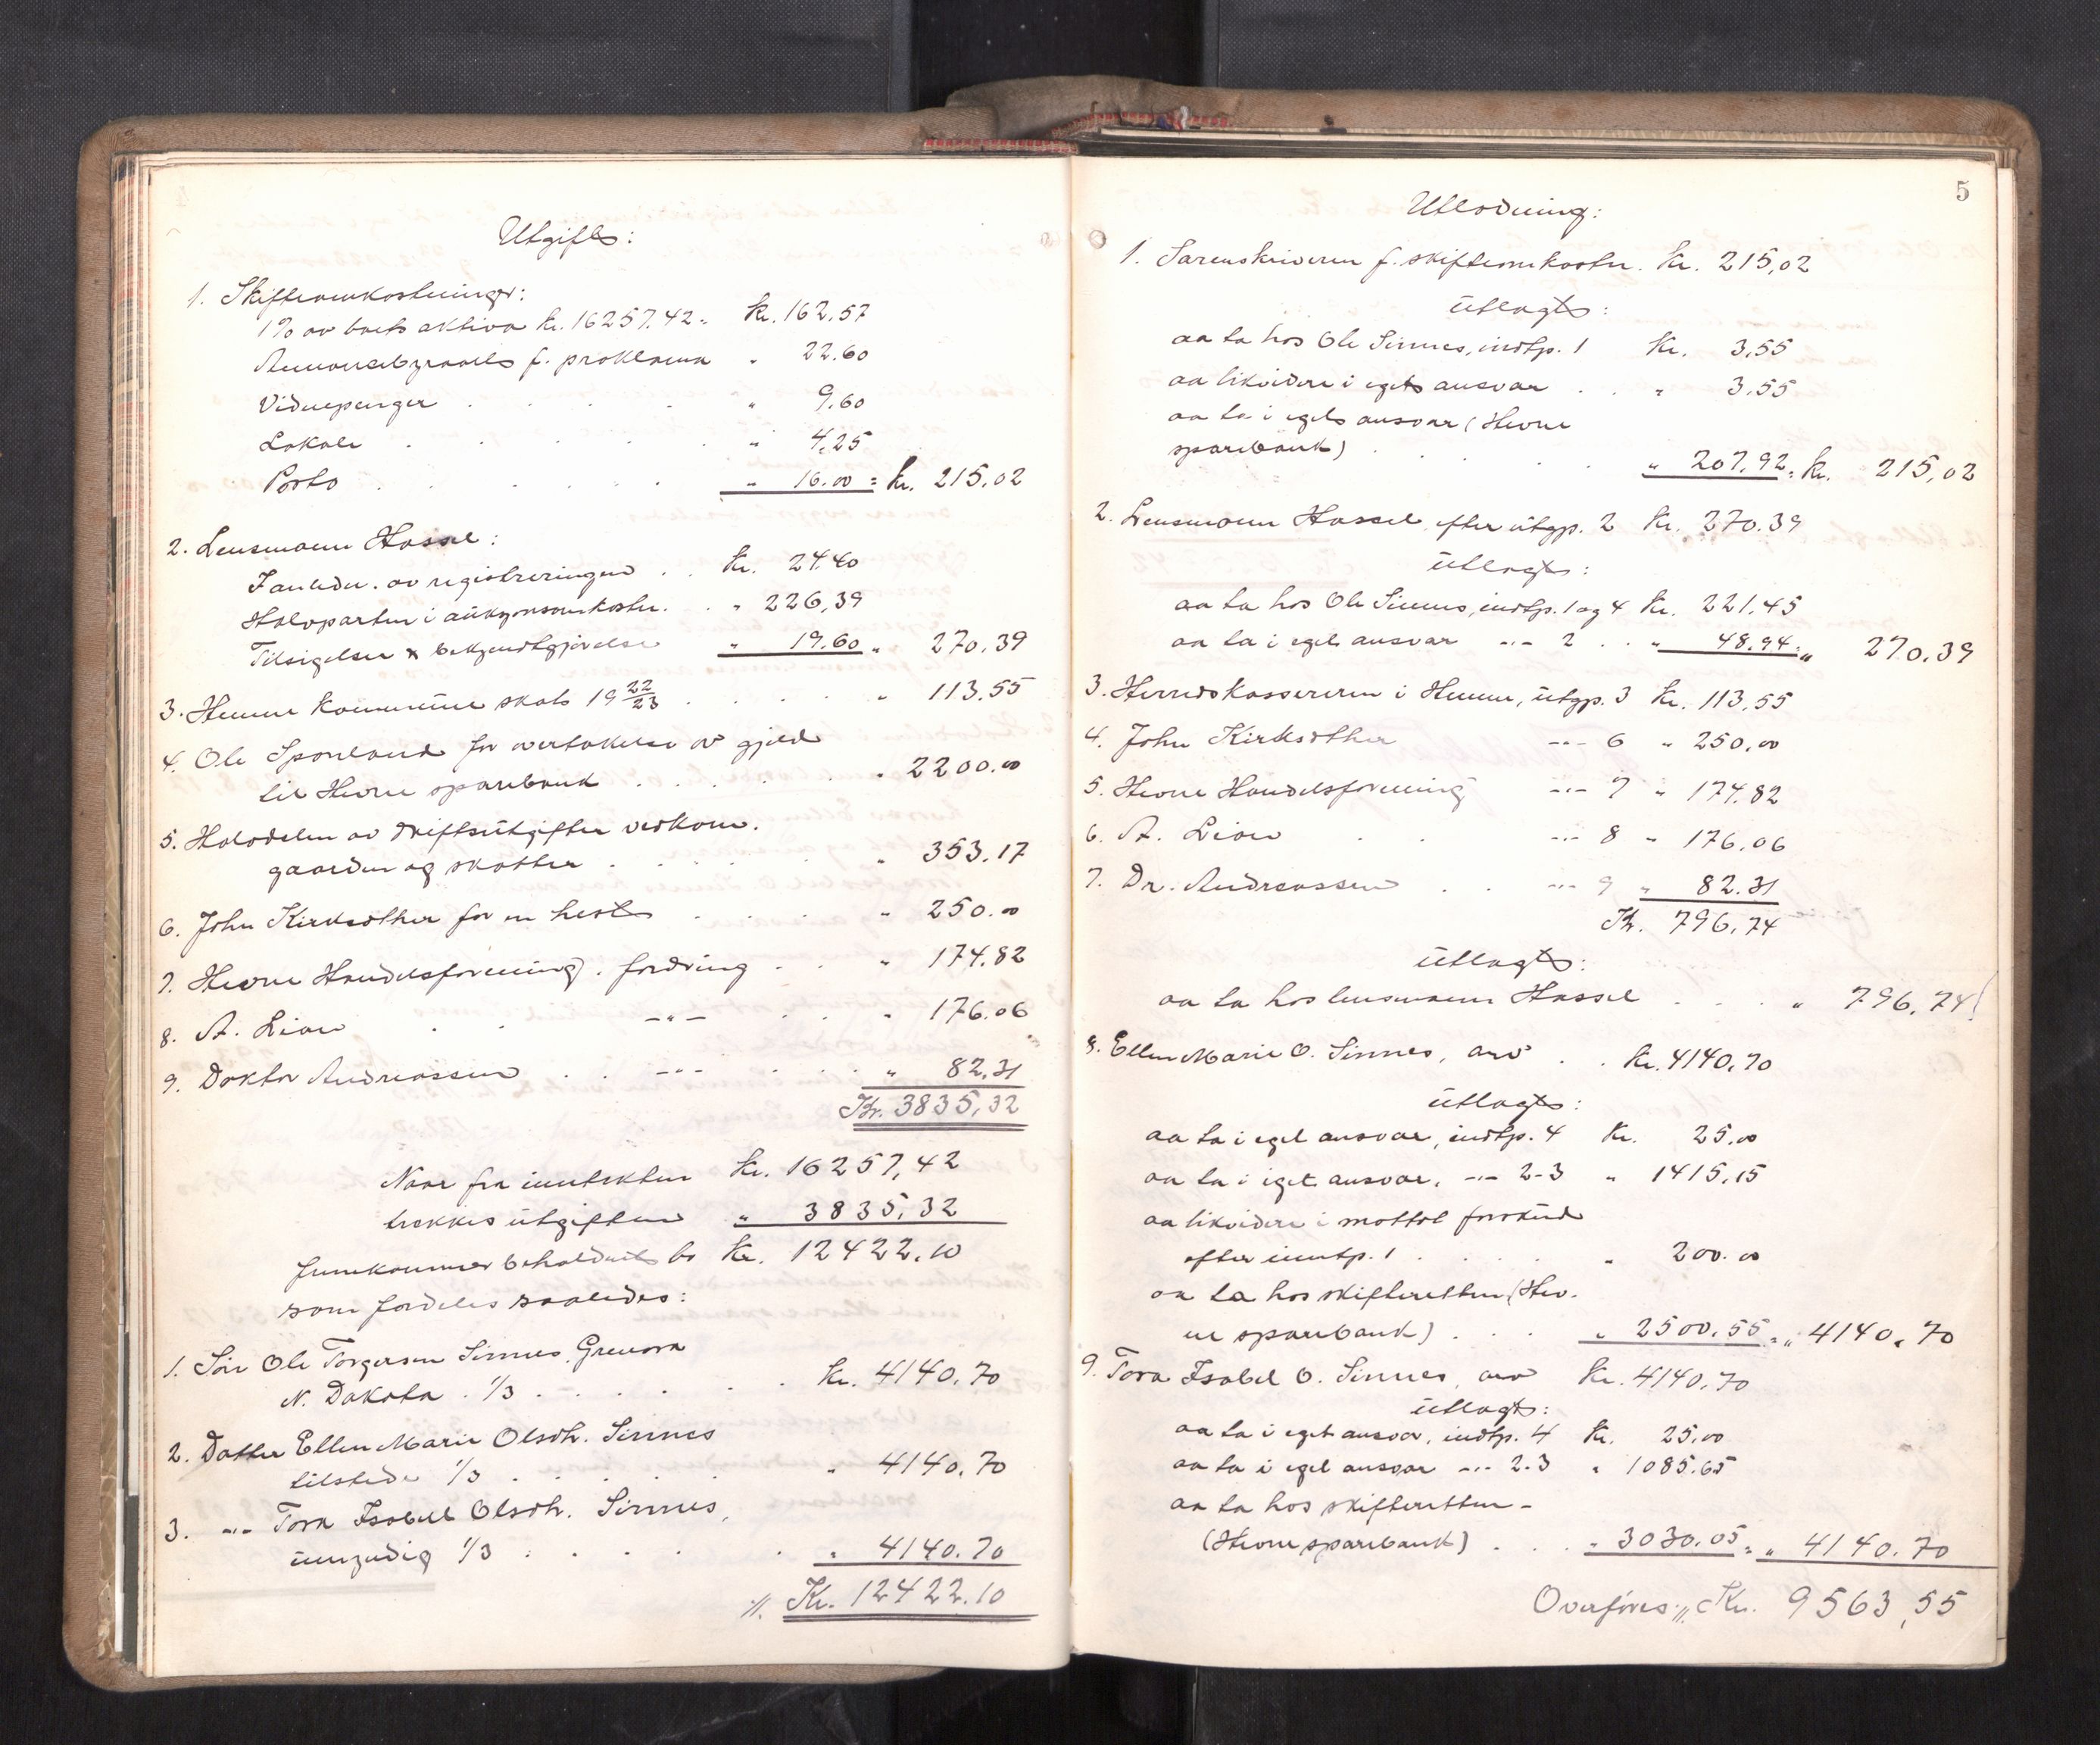 Utgift:
1. Skifteomkostninger:
1% av boets aktiva kr. 16257.42 = kr. 162.57
Annonsebyraaets f. proklama " 22.60
Vidnepenger " 9.60
Lokale " 4.25
Porto " 16.00 = kr. 215.02
2. Lensmann Hassel:
Fanledn. av registreringen kr. 24.40
Halvparten i auksjonsomkostn. " 226,39
Tilsigelser & bekjendtgjørelse " 19.60 " 270.39
3. Hemne kommune skat 19 22/23 " 113.55
4. Ole Sponland for overtakelse av gjeld
til Hevne sparebank " 2200.00
5. Halvdelen av driftsutgifter vedkom.
gaarden og skatter " 353.17
6. John Kirksæther for en hest " 250.00
7. Hevne Handelsforening. fordring " 174.82
8. A. Lian -"- " 176.06
9. Doktor Andreassen -"- " 82.31
Kr. 3835,32
Naar fra inntekten kr. 16257,42
trekkes utgiften " 3835,32
fremkommer beholdnets bo kr. 12422.10
som fordeles saaledes:
1. Søn Ole Torgersen Sinnes, Grenora
N. Dakota. 1/3 kr. 4140.70
2. Datter Ellen Marie Olsdtr. Sinnes
tilstede 1/3 " 4140.70
3. -"- Tora Isabel Olsdtr. Sinnes,
umyndig 1/3 " 4140.70
//. Kr. 12422.10
5
Utlodning:
1. Sorenskriveren f. skifteomkostn. kr. 215,02
utlagt:
aa ta hos Ole Sinnes, indtp. 1 kr. 3,55
aa likvidere i eget ansvar " 3,55
aa ta i eget ansvar (Hevne
sparebank) " 207,92 = kr. 215,02
2. Lensmann Hassel, efter utgp. 2 kr. 270.39
utlagt:
aa ta hos Ole Sinnes, indtp. 1 og 4 kr. 221.45
aa ta i eget ansvar -"- 2 " 48.94 = " 270.39
3. Herredskassereren i Hemne, utgp. 3 kr. 113,55
4. John Kirksæther -"- 6 " 250,00
5. Hevne Handelsforening -"- 7 " 174.82
6. A. Lian -"- 8 " 176,06
7. Dr. Andreassen -"- 9 " 82.31
Kr. 796,74
utlagt:
aa ta hos lensmann Hassel " 796,74
8. Ellen Marie O. Sinnes, arv kr. 4140,70
utlagt:
aa ta i eget ansvar, indtp. 4 kr. 25.00
aa ta i eget ansvar, -"- 2-3 " 1415,15
aa likvidere i mottat forskud
efter inntp. 1 " 200.00
aa ta hos skifteretten (Hev-
ne sparebank) " 2500.55 = " 4140.70
9. Tora Isabel O. Sinnes, arv kr. 4140,70
utlagt:
aa ta i eget ansvar, indtp. 4 kr. 25,00
aa ta i eget ansvar -"- 2-3 " 1085.65
aa ta hos skifteretten -
(Hevne sparebank) " 3030.05 = " 4140.70
Overføres // Kr. 9563,55